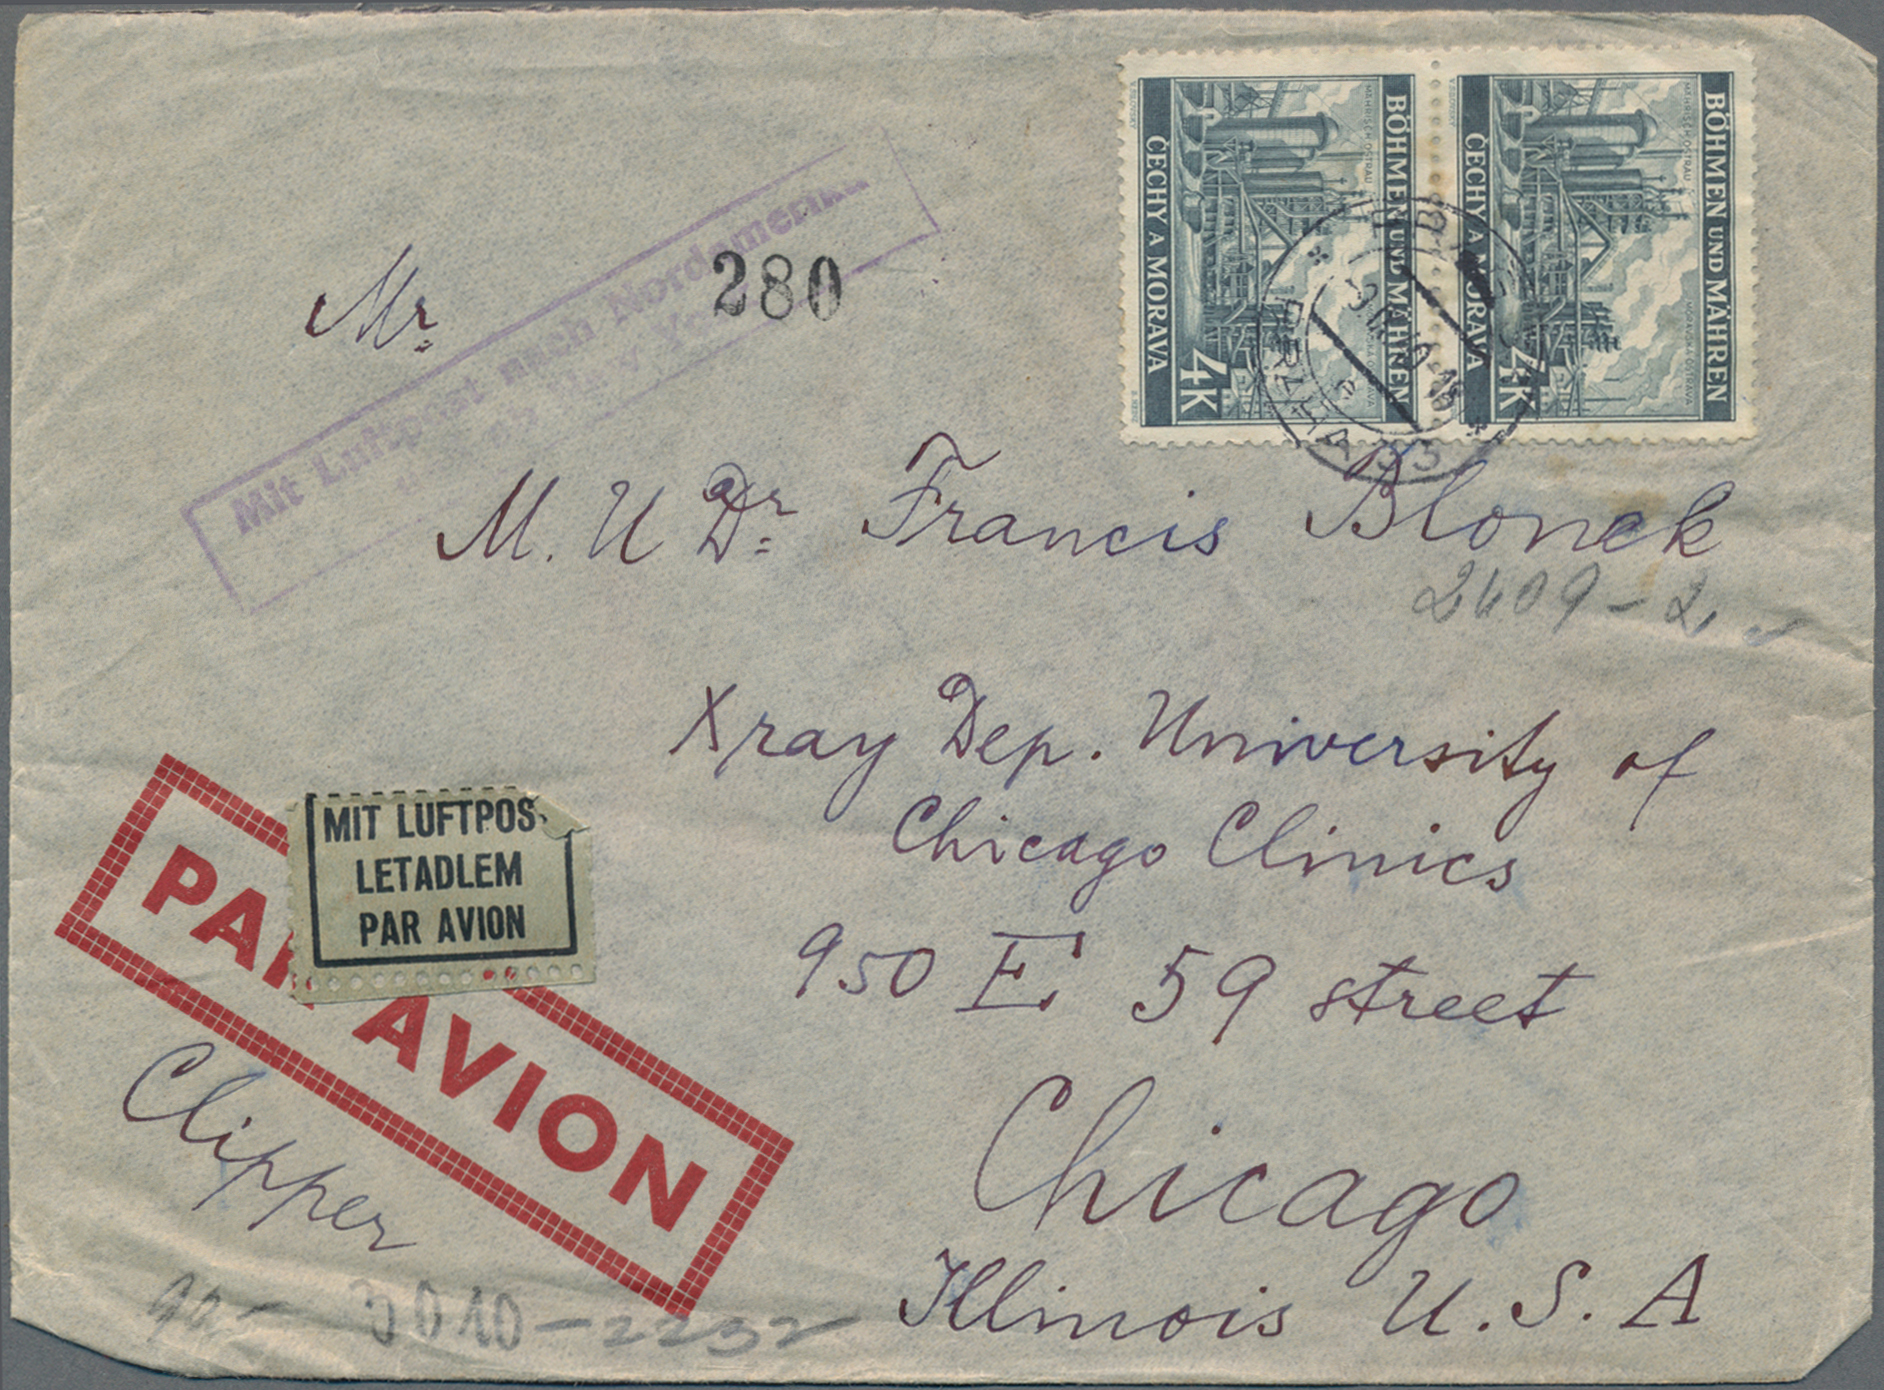 BÖHMEN UND MÄHREN
ČECHY A MORAVA
4K
MÄHRISCH OSTRAU
MORAVSKÁ OSTRAVA
BÖHMEN UND MÄHREN
ČECHY A MORAVA
4K
MÄHRISCH OSTRAU
MORAVSKÁ OSTRAVA
Mit Luftpost nach Nordamerika
280
Mr.
M. U Dr. Francis Blonek
2409-2
Xray Dep. University of
Chicago Clinics
950 E 59 street
Chicago
Illinois U.S.A
MIT LUFTPOS
LETADLEM
PAR AVION
PAR AVION
Clipper
3010-2232